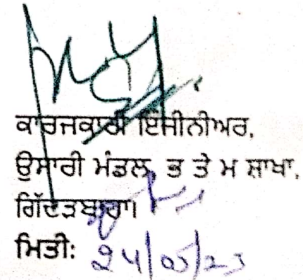 ਕਾਰਜਕਾਰੀ ਇੰਜੀਨੀਅਰ,
ਉਸਾਰੀ ਮੰਡਲ, ਭ ਤੇ ਮ ਸ਼ਾਖਾ,
ਗਿੱਦੜਬਾਹਾ।
ਮਿਤੀ: